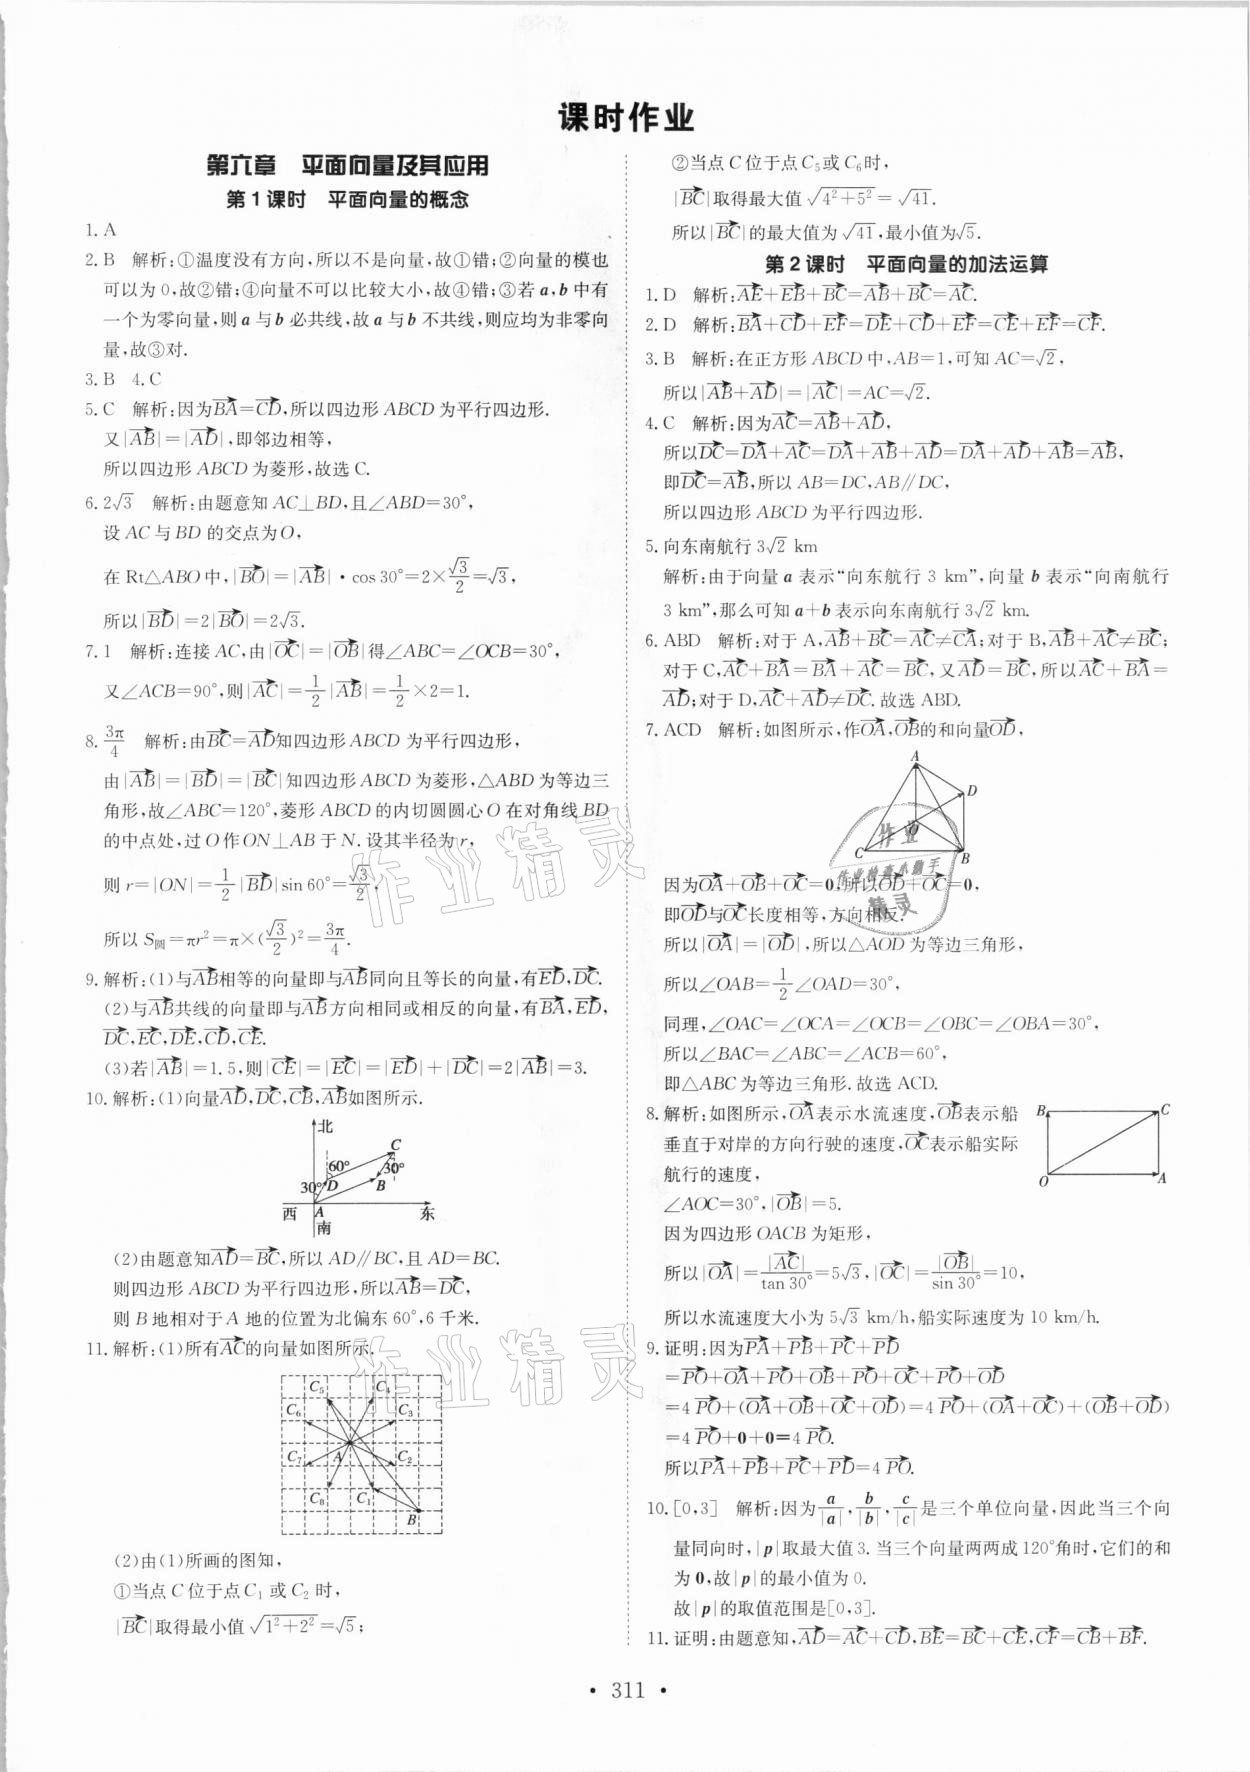 课时作业
第六章 平面向量及其应用
第1课时 平面向量的概念
1. A
2. B 解析:①温度没有方向,所以不是向量,故①错;②向量的模也
可以为0,故②错;④向量不可以比较大小,故④错;③若a,b中有
一个为零向量,则a与b必共线,故a与b不共线,则应均为非零向
量,故③对.
3. B 4. C
5. C 解析:因为$\overrightarrow{BA}=\overrightarrow{CD}$,所以四边形ABCD为平行四边形.
又|$\overrightarrow{AB}$|=|$\overrightarrow{AD}$|,即邻边相等,
所以四边形ABCD为菱形,故选C.
6. 2√3 解析:由题意知AC⊥BD,且∠ABD=30°,
设AC与BD的交点为O,
在Rt△ABO中,|$\overrightarrow{BO}$|=|$\overrightarrow{AB}$|·cos 30°=2×$\frac{\sqrt{3}}{2}$=√3,
所以|$\overrightarrow{BD}$|=2|$\overrightarrow{BO}$|=2√3.
7. 1 解析:连接AC,由|$\overrightarrow{OC}$|=|$\overrightarrow{OB}$|得∠ABC=∠OCB=30°,
又∠ACB=90°,则|$\overrightarrow{AC}$|=$\frac{1}{2}$|$\overrightarrow{AB}$|=$\frac{1}{2}$×2=1.
8. $\frac{3π}{4}$ 解析:由$\overrightarrow{BC}=\overrightarrow{AD}$知四边形ABCD为平行四边形,
由|$\overrightarrow{AB}$|=|$\overrightarrow{BD}$|=|$\overrightarrow{BC}$|知四边形ABCD为菱形,△ABD为等边三
角形,故∠ABC=120°,菱形ABCD的内切圆圆心O在对角线BD
的中点处,过O作ON⊥AB于N.设其半径为r,
则r=|ON|=$\frac{1}{2}$|$\overrightarrow{BD}$|sin 60°=$\frac{\sqrt{3}}{2}$,
所以S圆=πr²=π×($\frac{\sqrt{3}}{2}$)²=$\frac{3π}{4}$.
9. 解析:(1)与$\overrightarrow{AB}$相等的向量即与$\overrightarrow{AB}$同向且等长的向量,有$\overrightarrow{ED}$,$\overrightarrow{DC}$.
(2)与$\overrightarrow{AB}$共线的向量即与$\overrightarrow{AB}$方向相同或相反的向量,有$\overrightarrow{BA}$,$\overrightarrow{ED}$,
$\overrightarrow{DC}$,$\overrightarrow{EC}$,$\overrightarrow{DE}$,$\overrightarrow{CD}$,$\overrightarrow{CE}$.
(3)若|$\overrightarrow{AB}$|=1.5,则|$\overrightarrow{CE}$|=|$\overrightarrow{EC}$|=|$\overrightarrow{ED}$|+|$\overrightarrow{DC}$|=2|$\overrightarrow{AB}$|=3.
10. 解析:(1)向量$\overrightarrow{AD}$,$\overrightarrow{DC}$,$\overrightarrow{CB}$,$\overrightarrow{AB}$如图所示.
北
C
60°
30°
D
B
30°
西
A
东
南
(2)由题意知$\overrightarrow{AD}=\overrightarrow{BC}$,所以AD∥BC,且AD=BC.
则四边形ABCD为平行四边形,所以$\overrightarrow{AB}=\overrightarrow{DC}$,
则B地相对于A地的位置为北偏东60°,6千米.
11. 解析:(1)所有$\overrightarrow{AC}$的向量如图所示.
C₅ C₄
C₆ C₃
C₇ A C₂
C₈ C₁
B
(2)由(1)所画的图知,
①当点C位于点C₁或C₂时,
|$\overrightarrow{BC}$|取得最小值$\sqrt{1^2+2^2}$=√5;
②当点C位于点C₅或C₆时,
|$\overrightarrow{BC}$|取得最大值$\sqrt{4^2+5^2}$=√41.
所以|$\overrightarrow{BC}$|的最大值为√41,最小值为√5.
第2课时 平面向量的加法运算
1. D 解析:$\overrightarrow{AE}+\overrightarrow{EB}+\overrightarrow{BC}=\overrightarrow{AB}+\overrightarrow{BC}=\overrightarrow{AC}$.
2. D 解析:$\overrightarrow{BA}+\overrightarrow{CD}+\overrightarrow{EF}=\overrightarrow{DE}+\overrightarrow{CD}+\overrightarrow{EF}=\overrightarrow{CE}+\overrightarrow{EF}=\overrightarrow{CF}$.
3. B 解析:在正方形ABCD中,AB=1,可知AC=√2,
所以|$\overrightarrow{AB}+\overrightarrow{AD}$|=|$\overrightarrow{AC}$|=AC=√2.
4. C 解析:因为$\overrightarrow{AC}=\overrightarrow{AB}+\overrightarrow{AD}$,
所以$\overrightarrow{DC}=\overrightarrow{DA}+\overrightarrow{AC}=\overrightarrow{DA}+\overrightarrow{AB}+\overrightarrow{AD}=\overrightarrow{DA}+\overrightarrow{AD}+\overrightarrow{AB}=\overrightarrow{AB}$,
即$\overrightarrow{DC}=\overrightarrow{AB}$,所以AB=DC,AB∥DC,
所以四边形ABCD为平行四边形.
5. 向东南航行3√2 km
解析:由于向量a表示“向东航行3 km”,向量b表示“向南航行
3 km”,那么可知a+b表示向东南航行3√2 km.
6. ABD 解析:对于A,$\overrightarrow{AB}+\overrightarrow{BC}=\overrightarrow{AC}≠\overrightarrow{CA}$;对于B,$\overrightarrow{AB}+\overrightarrow{AC}≠\overrightarrow{BC}$;
对于C,$\overrightarrow{AC}+\overrightarrow{BA}=\overrightarrow{BA}+\overrightarrow{AC}=\overrightarrow{BC}$,又$\overrightarrow{AD}=\overrightarrow{BC}$,所以$\overrightarrow{AC}+\overrightarrow{BA}=$
$\overrightarrow{AD}$;对于D,$\overrightarrow{AC}+\overrightarrow{AD}≠\overrightarrow{DC}$.故选ABD.
7. ACD 解析:如图所示,作$\overrightarrow{OA}$,$\overrightarrow{OB}$的和向量$\overrightarrow{OD}$,
A
D
O
C
B
因为$\overrightarrow{OA}+\overrightarrow{OB}+\overrightarrow{OC}$=0,所以$\overrightarrow{OD}+\overrightarrow{OC}$=0,
即$\overrightarrow{OD}$与$\overrightarrow{OC}$长度相等,方向相反.
所以|$\overrightarrow{OA}$|=|$\overrightarrow{OD}$|,所以△AOD为等边三角形,
所以∠OAB=$\frac{1}{2}$∠OAD=30°,
同理,∠OAC=∠OCA=∠OCB=∠OBC=∠OBA=30°,
所以∠BAC=∠ABC=∠ACB=60°,
即△ABC为等边三角形.故选ACD.
8. 解析:如图所示,$\overrightarrow{OA}$表示水流速度,$\overrightarrow{OB}$表示船
垂直于对岸的方向行驶的速度,$\overrightarrow{OC}$表示船实际
航行的速度,
∠AOC=30°,|$\overrightarrow{OB}$|=5.
B
C
O
A
因为四边形OACB为矩形,
所以|$\overrightarrow{OA}$|=$\frac{|\overrightarrow{AC}|}{\tan 30°}$=5√3,|$\overrightarrow{OC}$|=$\frac{|\overrightarrow{OB}|}{\sin 30°}$=10,
所以水流速度大小为5√3 km/h,船实际速度为10 km/h.
9. 证明:因为$\overrightarrow{PA}+\overrightarrow{PB}+\overrightarrow{PC}+\overrightarrow{PD}$
=$\overrightarrow{PO}+\overrightarrow{OA}+\overrightarrow{PO}+\overrightarrow{OB}+\overrightarrow{PO}+\overrightarrow{OC}+\overrightarrow{PO}+\overrightarrow{OD}$
=4$\overrightarrow{PO}$+($\overrightarrow{OA}+\overrightarrow{OB}+\overrightarrow{OC}+\overrightarrow{OD}$)=4$\overrightarrow{PO}$+($\overrightarrow{OA}+\overrightarrow{OC}$)+($\overrightarrow{OB}+\overrightarrow{OD}$)
=4$\overrightarrow{PO}$+0+0=4$\overrightarrow{PO}$.
所以$\overrightarrow{PA}+\overrightarrow{PB}+\overrightarrow{PC}+\overrightarrow{PD}$=4$\overrightarrow{PO}$.
10. [0,3] 解析:因为$\frac{a}{|a|}$,$\frac{b}{|b|}$,$\frac{c}{|c|}$是三个单位向量,因此当三个向
量同向时,|p|取最大值3.当三个向量两两成120°角时,它们的和
为0,故|p|的最小值为0.
故|p|的取值范围是[0,3].
11. 证明:由题意知,$\overrightarrow{AD}=\overrightarrow{AC}+\overrightarrow{CD}$,$\overrightarrow{BE}=\overrightarrow{BC}+\overrightarrow{CE}$,$\overrightarrow{CF}=\overrightarrow{CB}+\overrightarrow{BF}$.
作业精灵
作业精灵
作业
作业检查小助手
精灵
• 311 •